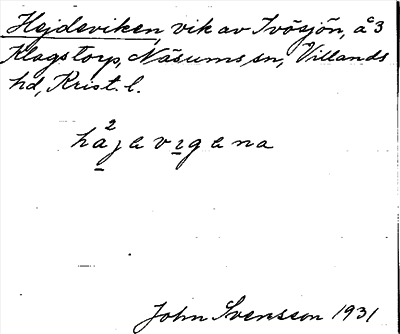 Hejdeviken, vik av Ivösjön, å 3
Klagstorp, Näsums sn, Villands
hd, Krist. l.
2
hajavıgana
John Svensson 1931